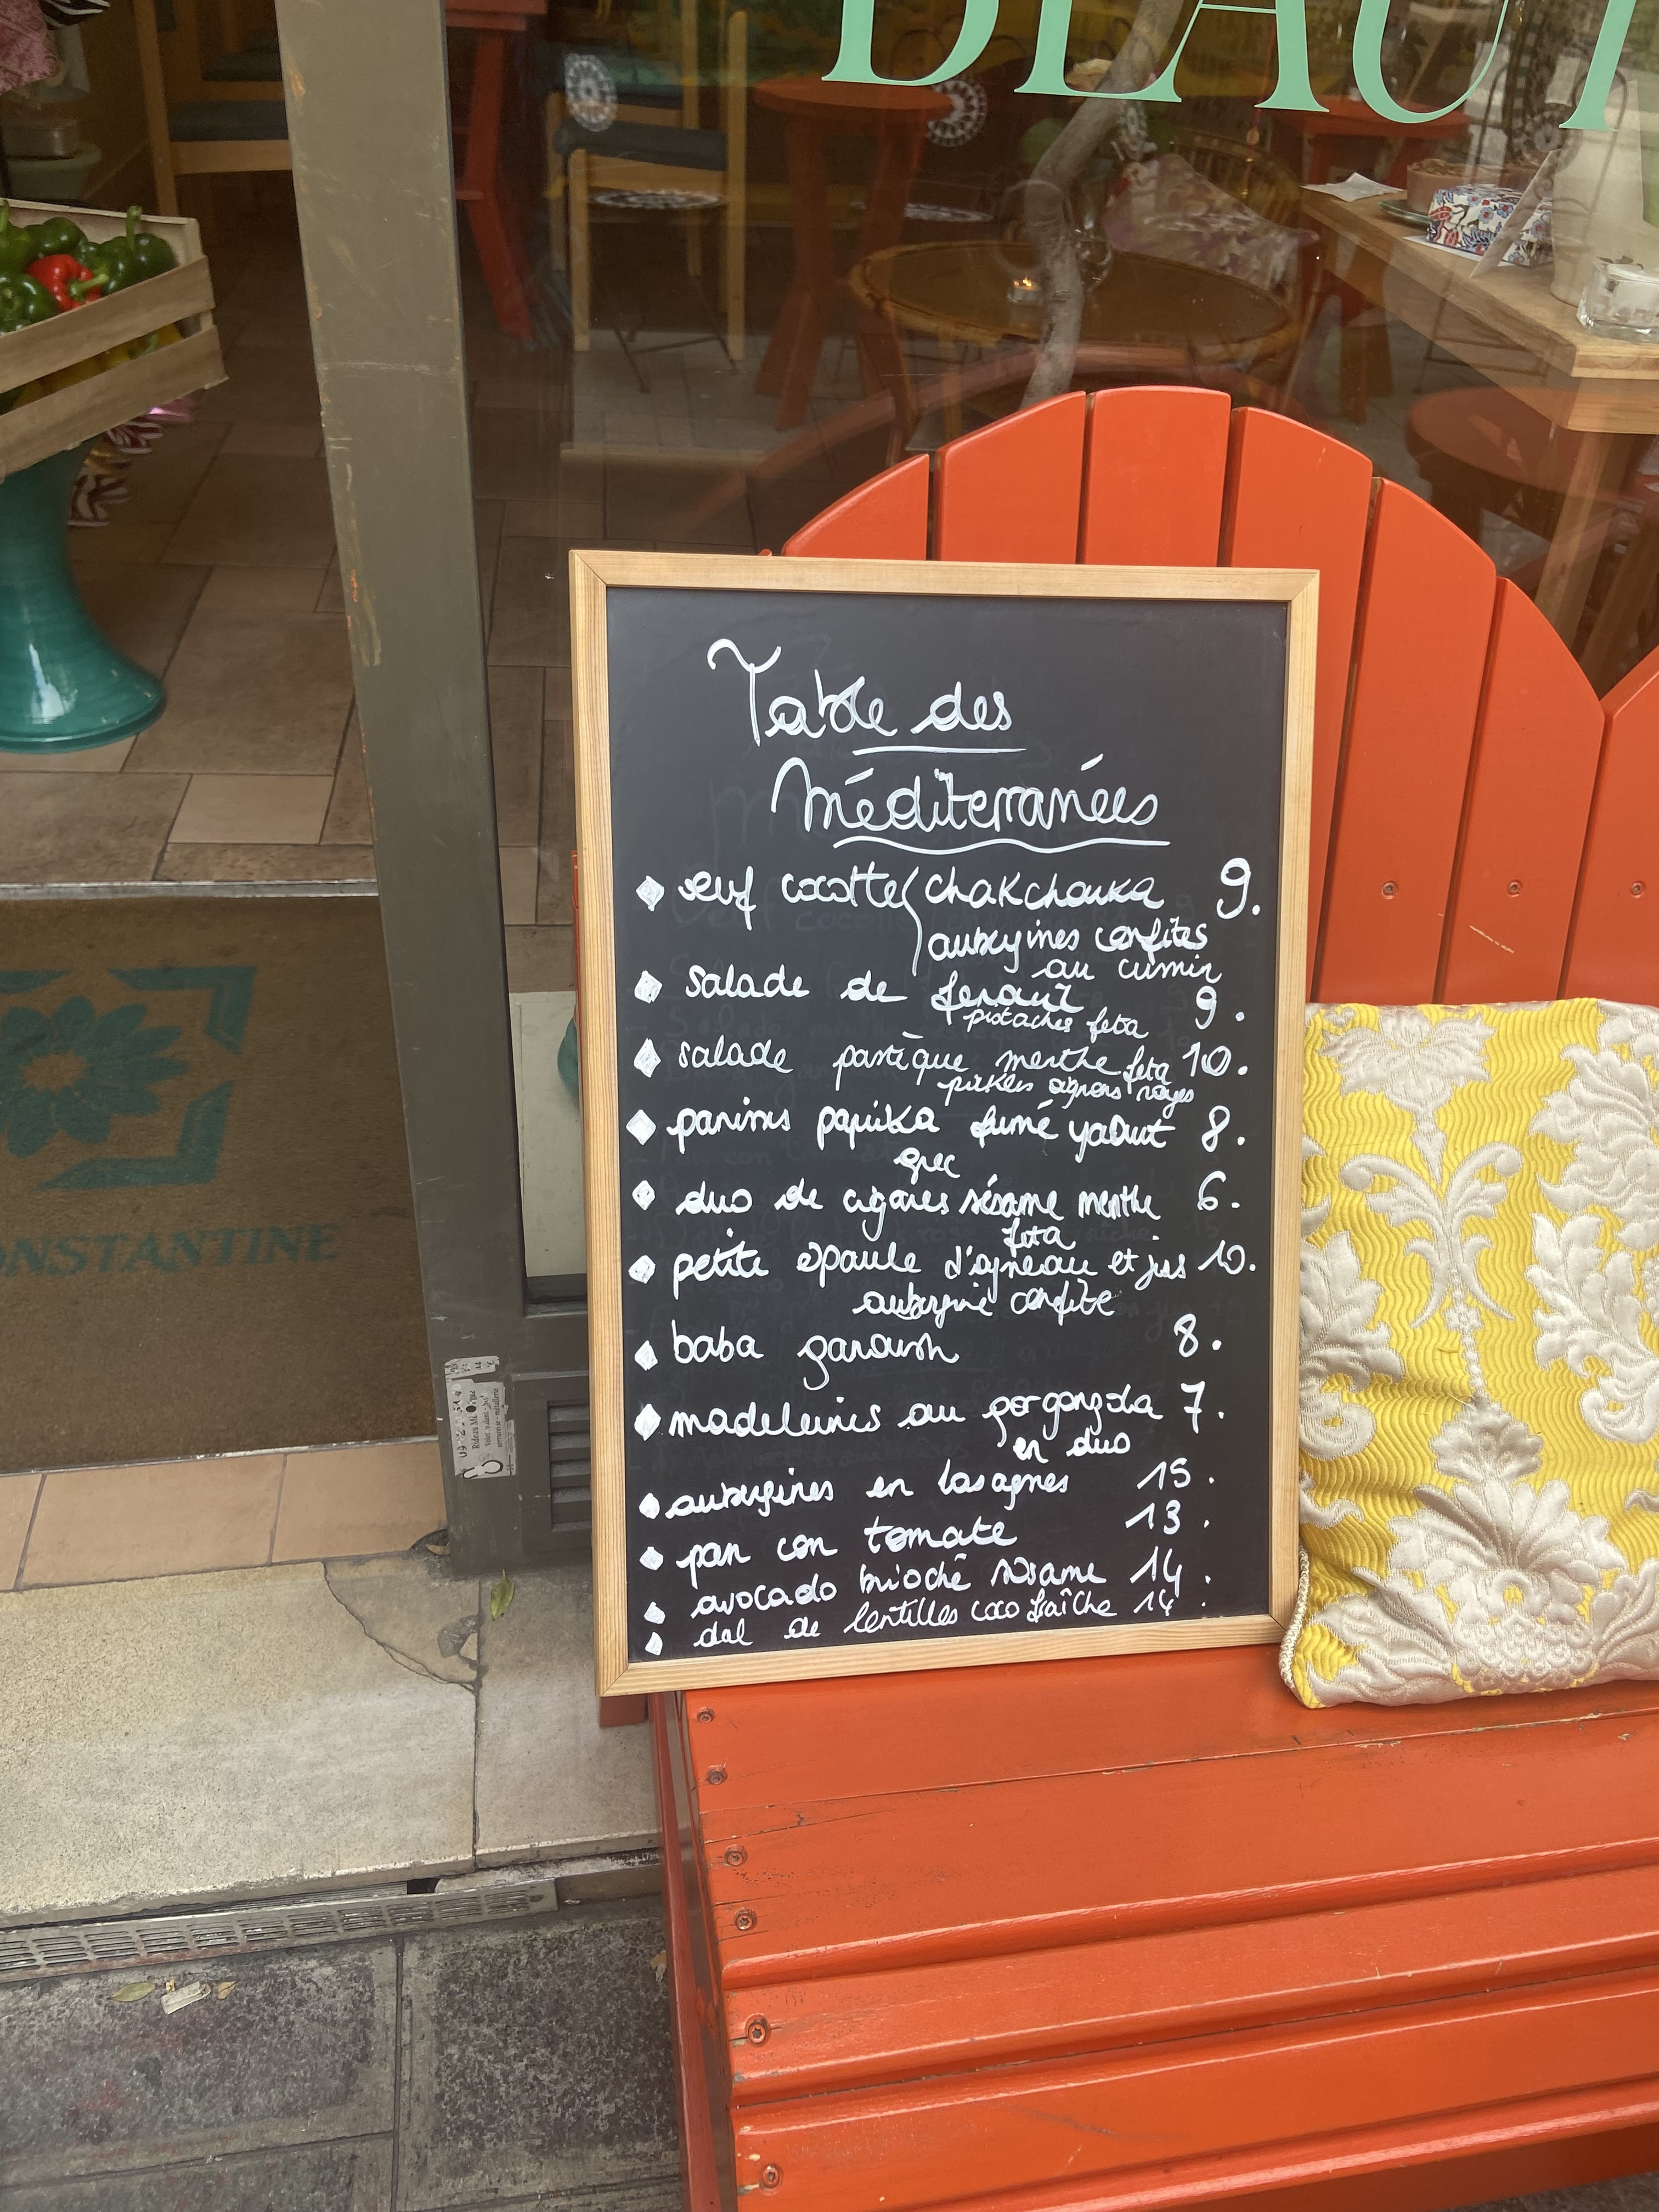 BEAUT
Table des
Méditerranées
œuf cocotte chakchouka 9.
aubergines confites
au cumin
salade de fenouil 9.
pistaches feta
salade pastèque menthe feta 10.
pickles oignons rouges
paninis paprika fumé yaourt 8.
grec
duo de cigares sésame menthe 6.
feta
petite épaule d'agneau et jus 10.
aubergine confite
baba ganoush 8.
madeleines au gorgonzola 7.
en duo
aubergines en lasagnes 15.
pan con tomate 13.
avocado brioché sésame 14.
dal de lentilles coco fraîche 14.
ONSTANTINE